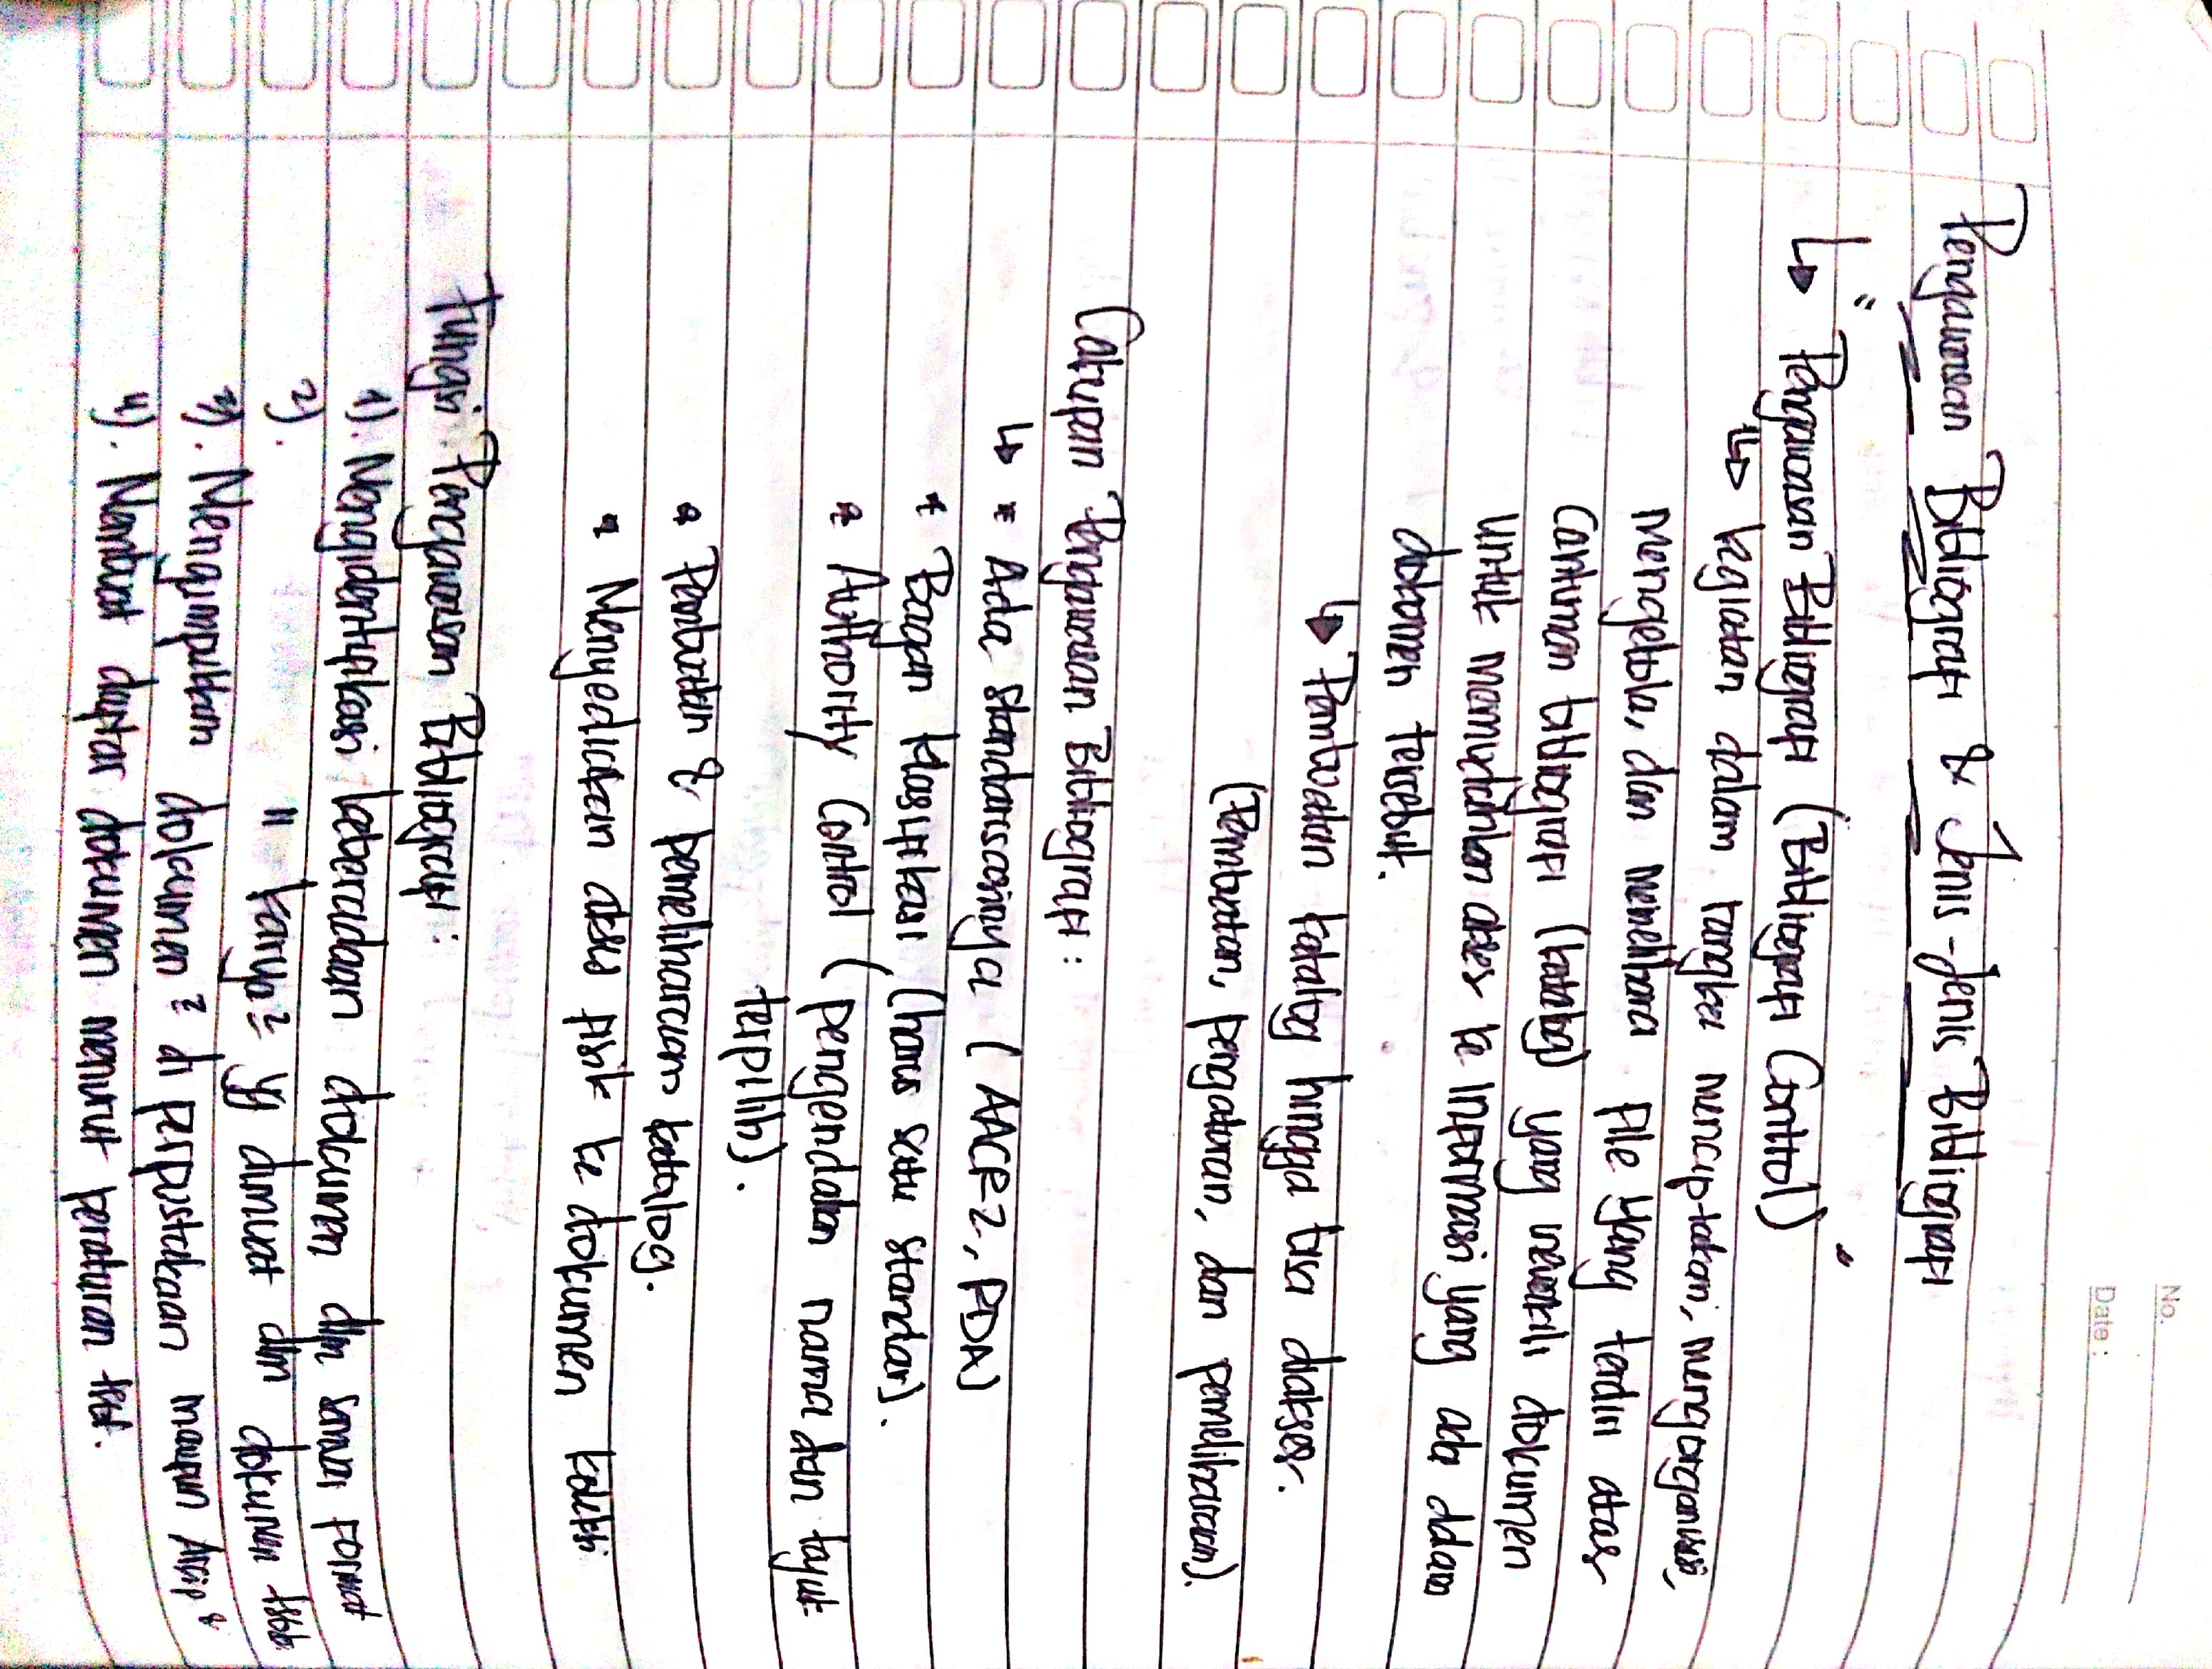 No.
Date :
Pengawasan Bibliografi & Jenis-Jenis Bibliografi
" Pengawasan Bibliografi (Bibliografi Control) "
↳ kegiatan dalam rangka menciptakan, mengorganisir,
mengelola, dan memelihara file yang terdiri atas
cantuman bibliografi (katalog) yang mewakili dokumen
untuk memudahkan akses ke informasi yang ada dalam
dokumen tersebut.
↳ Pembuatan katalog hingga bisa diakses.
(Pembuatan, pengaturan, dan pemeliharaan).
Cakupan Pengawasan Bibliografi :
↳ * Ada standarisasinya (AACR2, RDA)
* Bagan klasifikasi (harus satu standar).
* Authority Control (pengendalian nama dan tajuk
terpilih).
* Pembuatan & pemeliharaan katalog.
* Menyediakan akses fisik ke dokumen koleksi
Fungsi Pengawasan Bibliografi :
1). Mengidentifikasi keberadaan dokumen dlm semua format
2). " karya² yg dimuat dlm dokumen tsb
3). Mengumpulkan dokumen² di perpustakaan maupun Arsip
4). Membuat daftar dokumen menurut peraturan ttt.